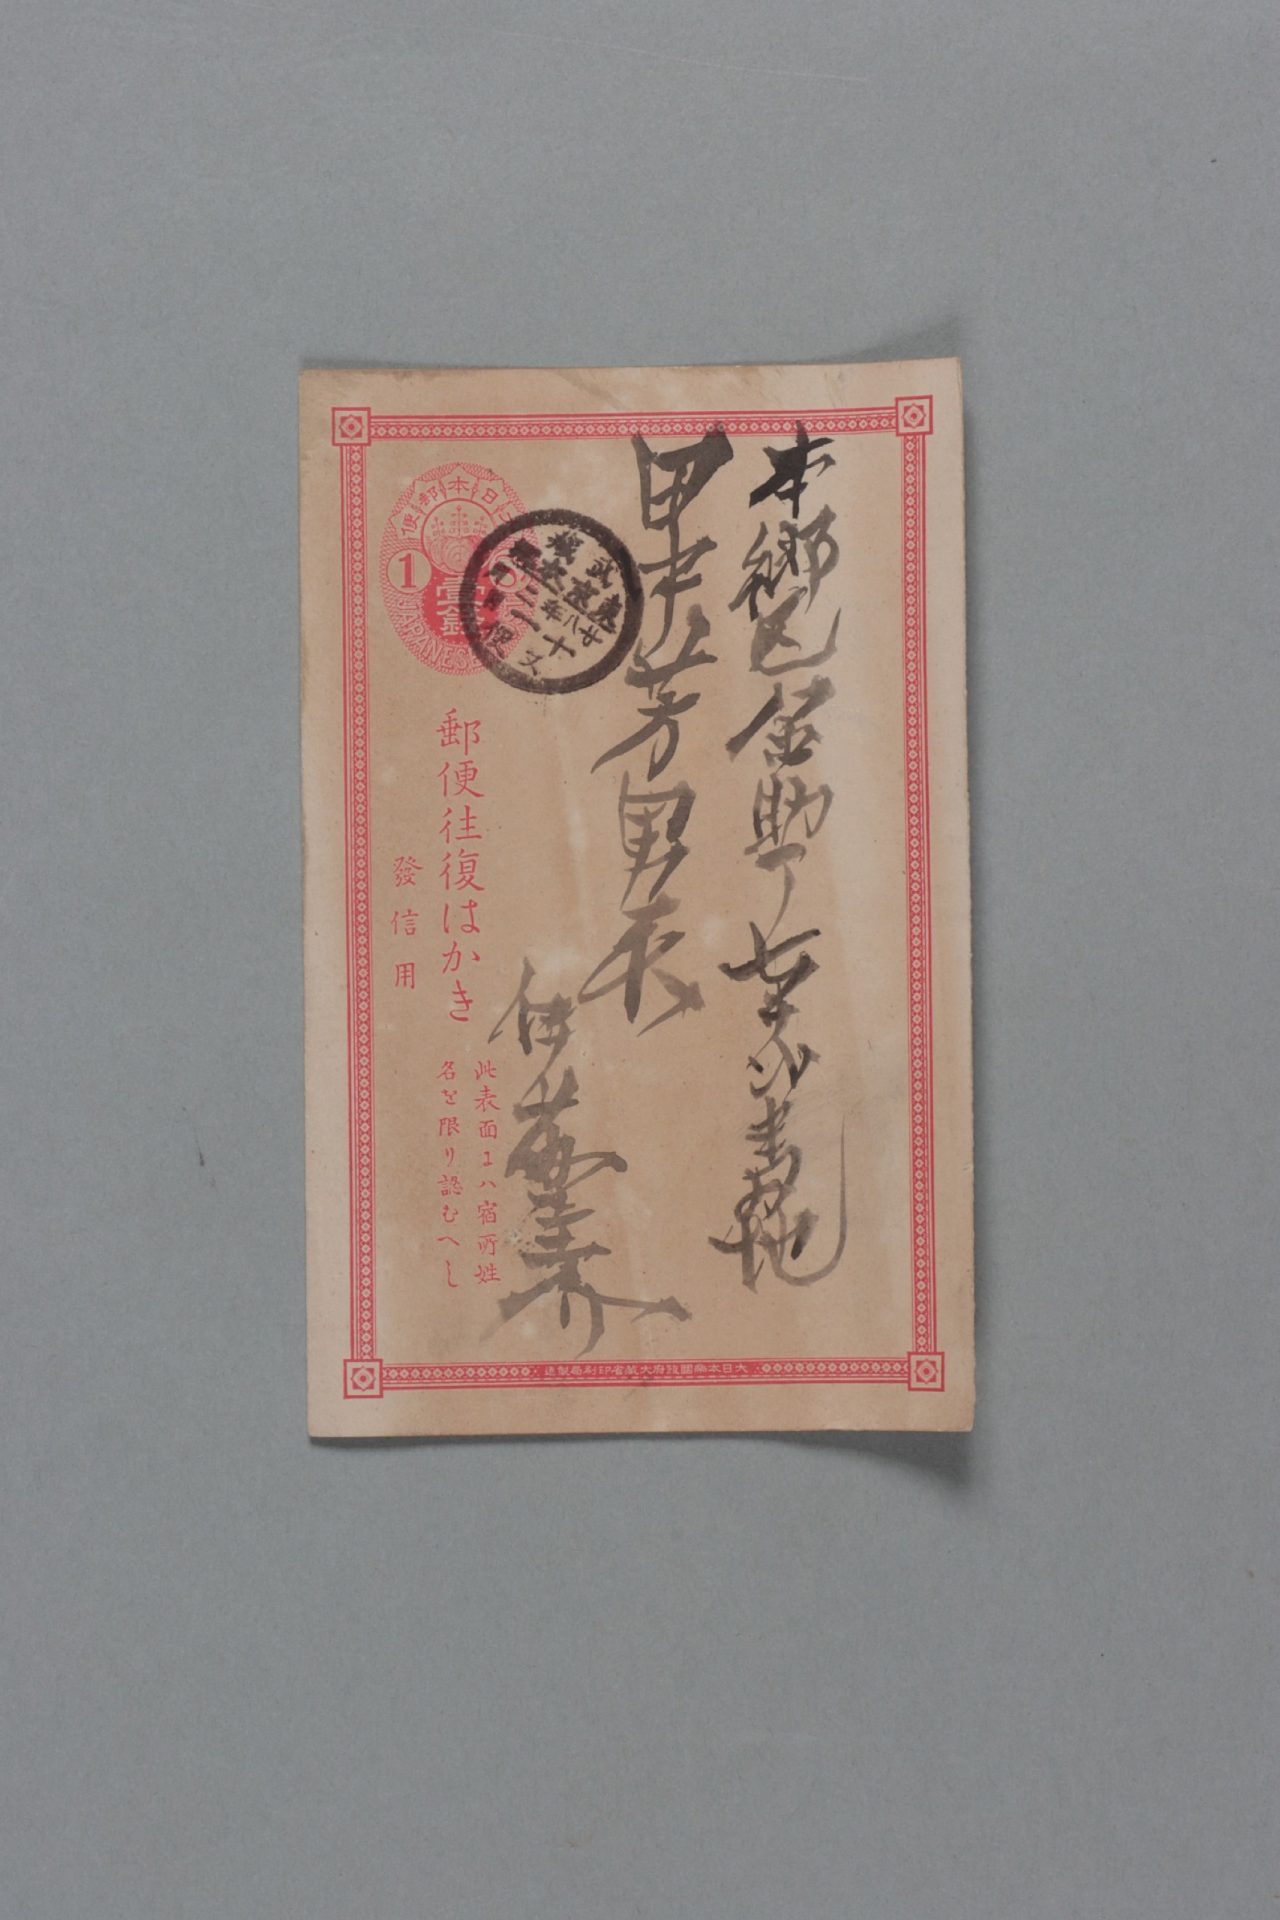 本郷区金助丁七十六番地
田中芳男表
伊藤圭介
大日本郵便
1
壹銭
JAPANESE
武蔵
東京
廿八年
郵便往復はかき
發信用
此表面にハ宿所姓
名を限り認むへし
大日本帝國政府大藏省印刷局製造